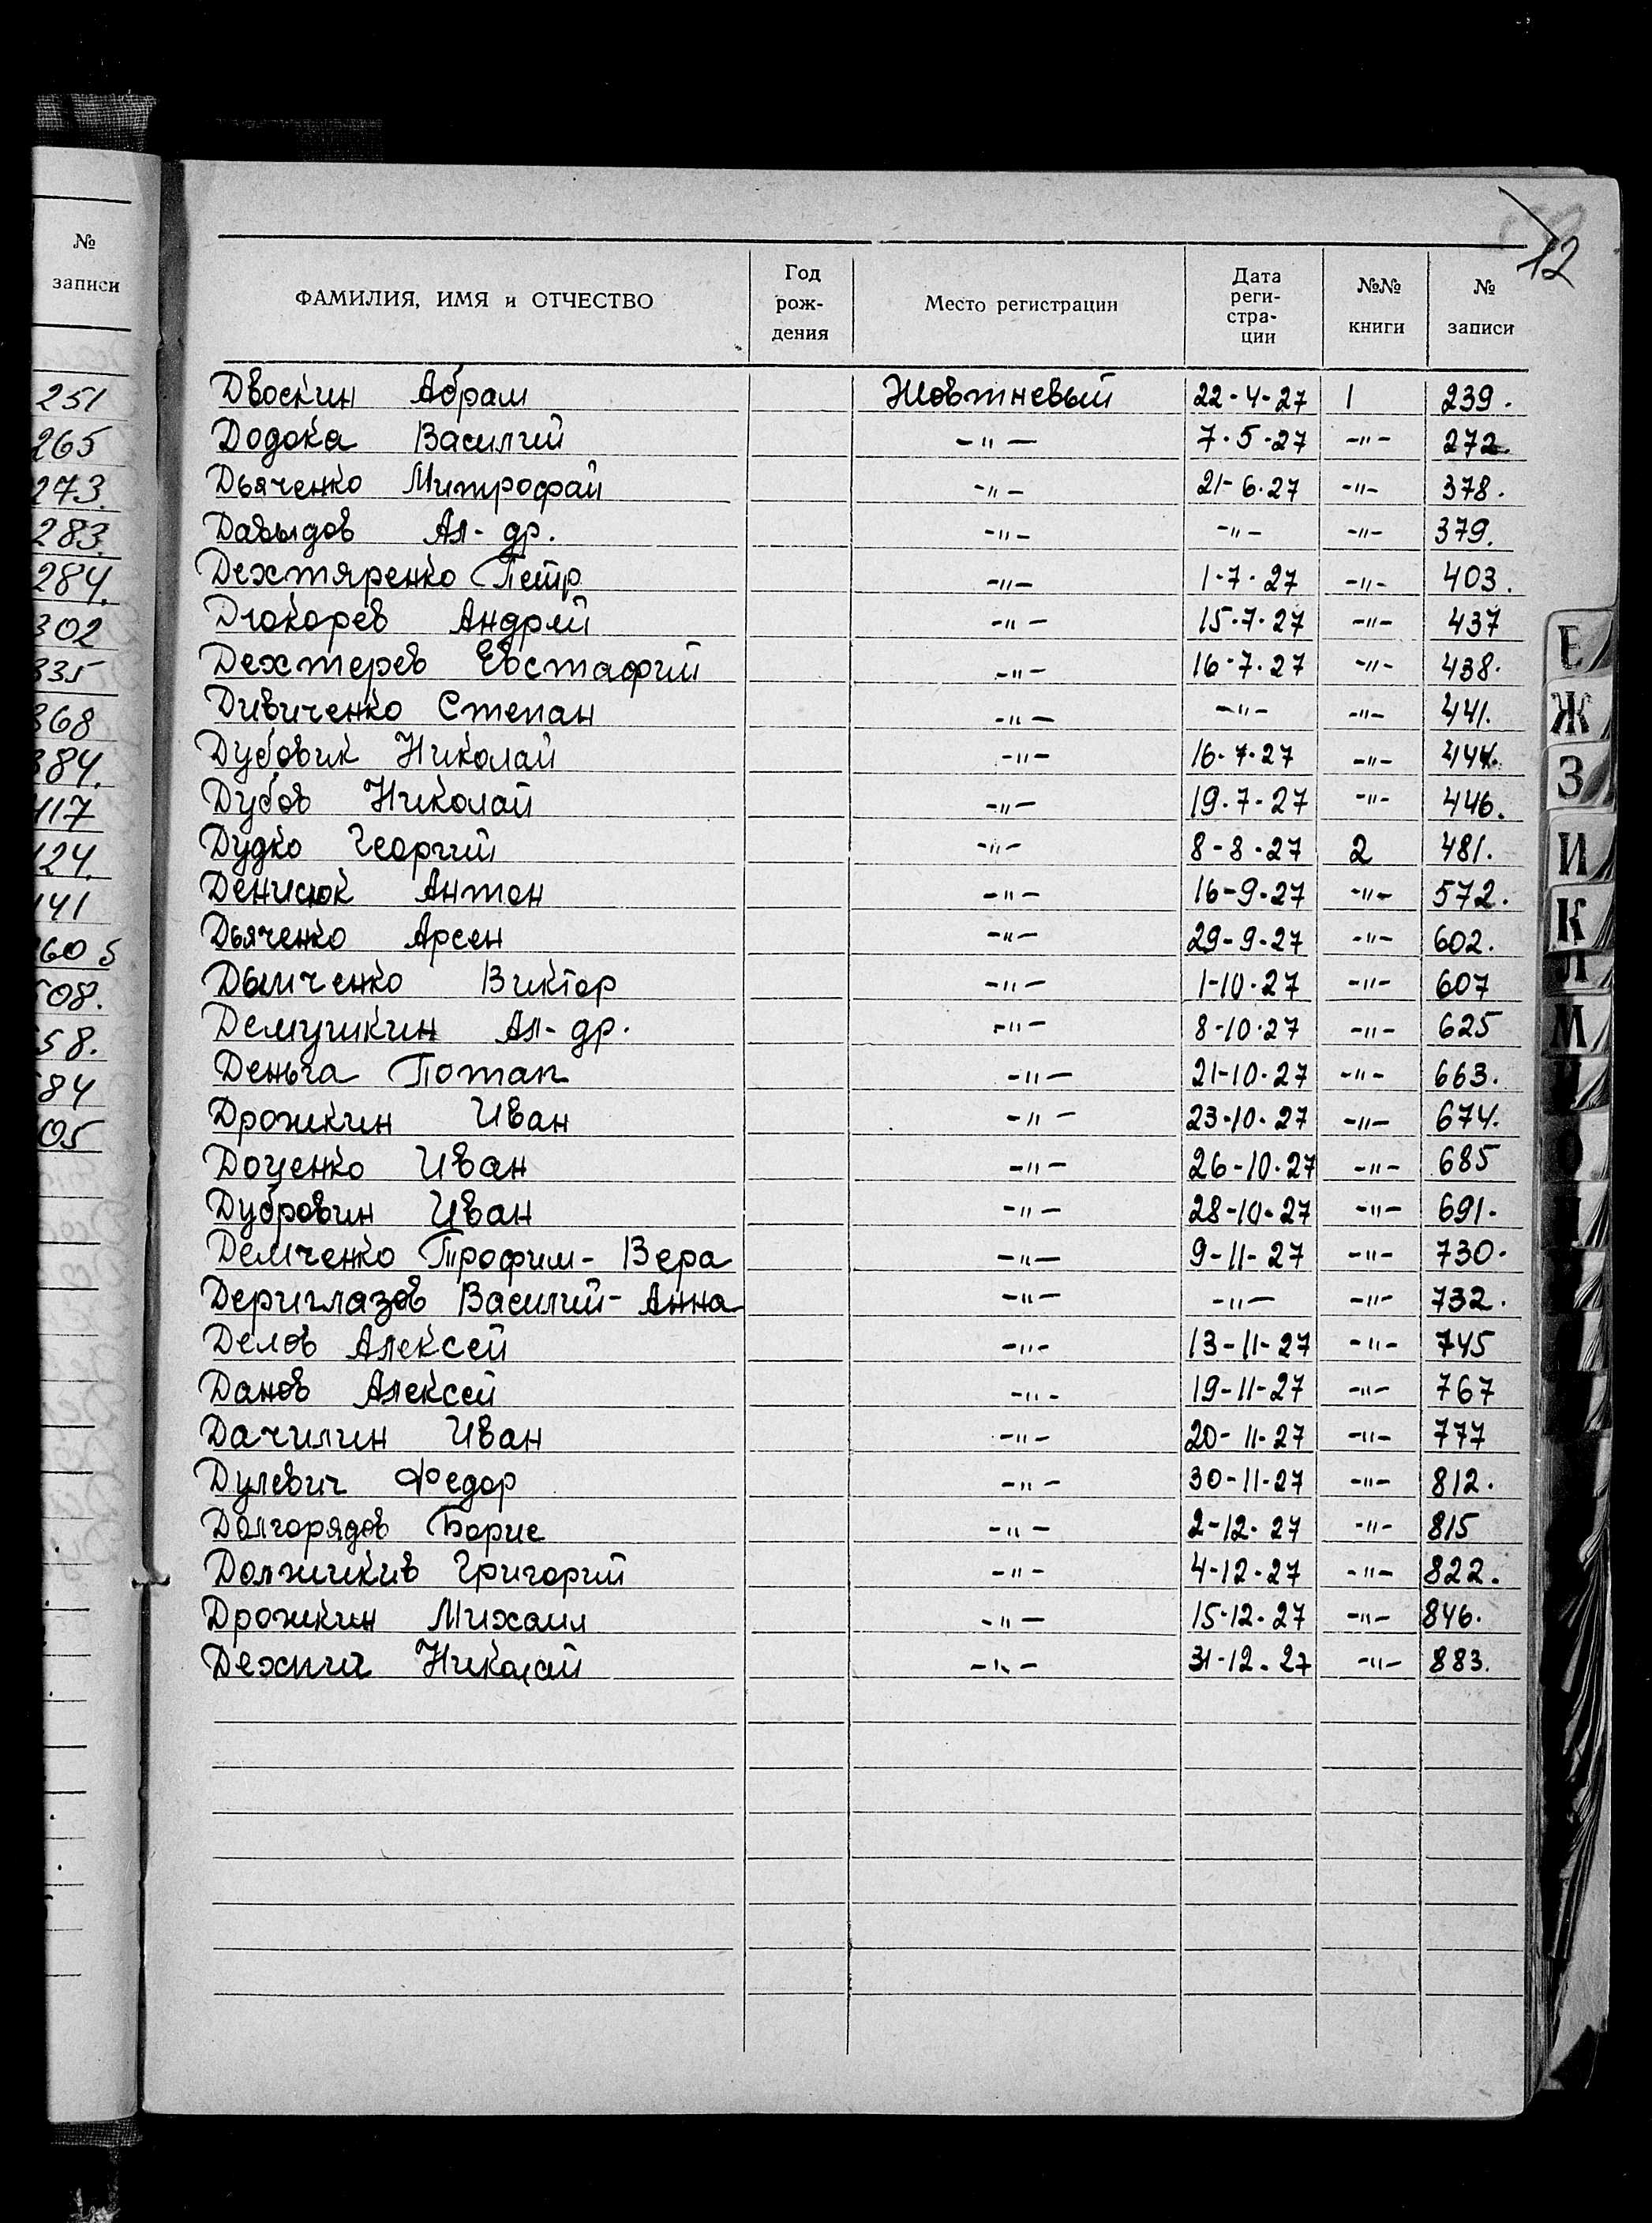 12
№ записи
251
265
273.
283.
284.
302
335
368
384.
417
124.
141
460 5
508.
58.
84
05
ФАМИЛИЯ, ИМЯ и ОТЧЕСТВО Год рож- дения Место регистрации Дата реги- стра- ции №№ книги № записи
Двоскин Абрам Жовтневый 22-4-27 1 239.
Додока Василий -"- 7-5-27 -"- 272.
Дьяченко Митрофан -"- 21-6-27 -"- 378.
Давыдов Ал-др. -"- -"- -"- 379.
Дехтяренко Петр -"- 1-7-27 -"- 403.
Дюкарев Андрей -"- 15-7-27 -"- 437
Дехтерев Евстафий -"- 16-7-27 -"- 438.
Дивиченко Степан -"- -"- -"- 441.
Дубовик Николай -"- 16-7-27 -"- 444.
Дубов Николай -"- 19-7-27 -"- 446.
Дудко Георгий -"- 8-8-27 2 481.
Денисюк Антон -"- 16-9-27 -"- 572.
Дьяченко Арсен -"- 29-9-27 -"- 602.
Дымченко Виктор -"- 1-10-27 -"- 607
Демушкин Ал-др. -"- 8-10-27 -"- 625
Деньга Потап -"- 21-10-27 -"- 663.
Дрожкин Иван -"- 23-10-27 -"- 674.
Доценко Иван -"- 26-10-27 -"- 685
Дубровин Иван -"- 28-10-27 -"- 691.
Демченко Трофим-Вера -"- 9-11-27 -"- 730.
Дериглазов Василий-Анна -"- -"- -"- 732.
Делов Алексей -"- 13-11-27 -"- 745
Данов Алексей -"- 19-11-27 -"- 767
Дачилин Иван -"- 20-11-27 -"- 777
Дулевич Федор -"- 30-11-27 -"- 812.
Долгорядов Борис -"- 2-12-27 -"- 815
Должикив Григорий -"- 4-12-27 -"- 822.
Дрожкин Михаил -"- 15-12-27 -"- 846.
Николай -"- 31-12-27 -"- 883.
Е
Ж
З
И
К
Л
М